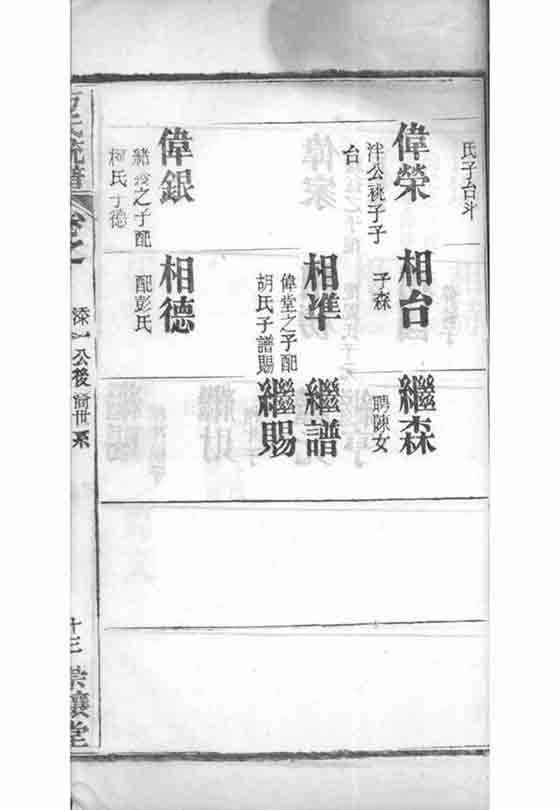 氏子台斗
偉榮
泮公祧子子
台
相台
子森
繼森
聘陳女
相準
偉堂之子配
胡氏子譜賜
繼譜
繼賜
偉銀
緒
之子配
柯氏子德
相德
配彭氏
氏統譜
卷之一
添一公後
世系
十三
堂